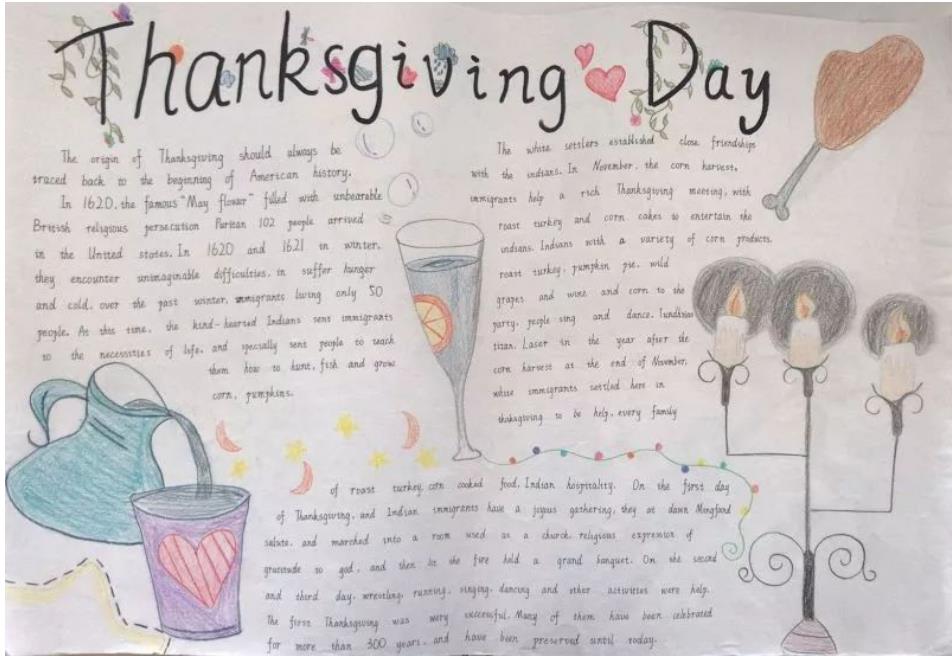 Thanksgiving Day
The origin of Thanksgiving should always be
traced back to the beginning of American history.
In 1620, the famous "May flower" filled with unbearable
British religious persecution Puritan 102 people arrived
in the United states. In 1620 and 1621 in winter,
they encounter unimaginable difficulties, in suffer hunger
and cold, over the past winter, immigrants living only 50
people. At this time, the kind-hearted Indians sent immigrants
to the necessities of life, and specially sent people to teach
them how to hunt, fish and grow
corn, pumpkins.
The white settlers established close friendships
with the indians. In November, the corn harvest,
immigrants help a rich Thanksgiving meeting, with
roast turkey and corn cakes to entertain the
indians. Indians with a variety of corn products,
roast turkey, pumpkin pie, wild
grapes and wine and corn to the
party, people sing and dance,
tizan. Laser in the year after the
corn harvest at the end of November,
white immigrants settled here in
thaksgiving to be help, every family
of roast turkey, corn cooked food, Indian hospitality. On the first day
of Thanksgiving, and Indian immigrants have a joyous gathering, they at dawn
salute, and marched into a room used as a church, religious expression of
gratitude to god, and then lit the fire held a grand banquet. On the second
and third day, wrestling, running, singing, dancing and other activities were help.
The first Thanksgiving was very successful. Many of them have been celebrated
for more than 300 years, and have been preserved until today.